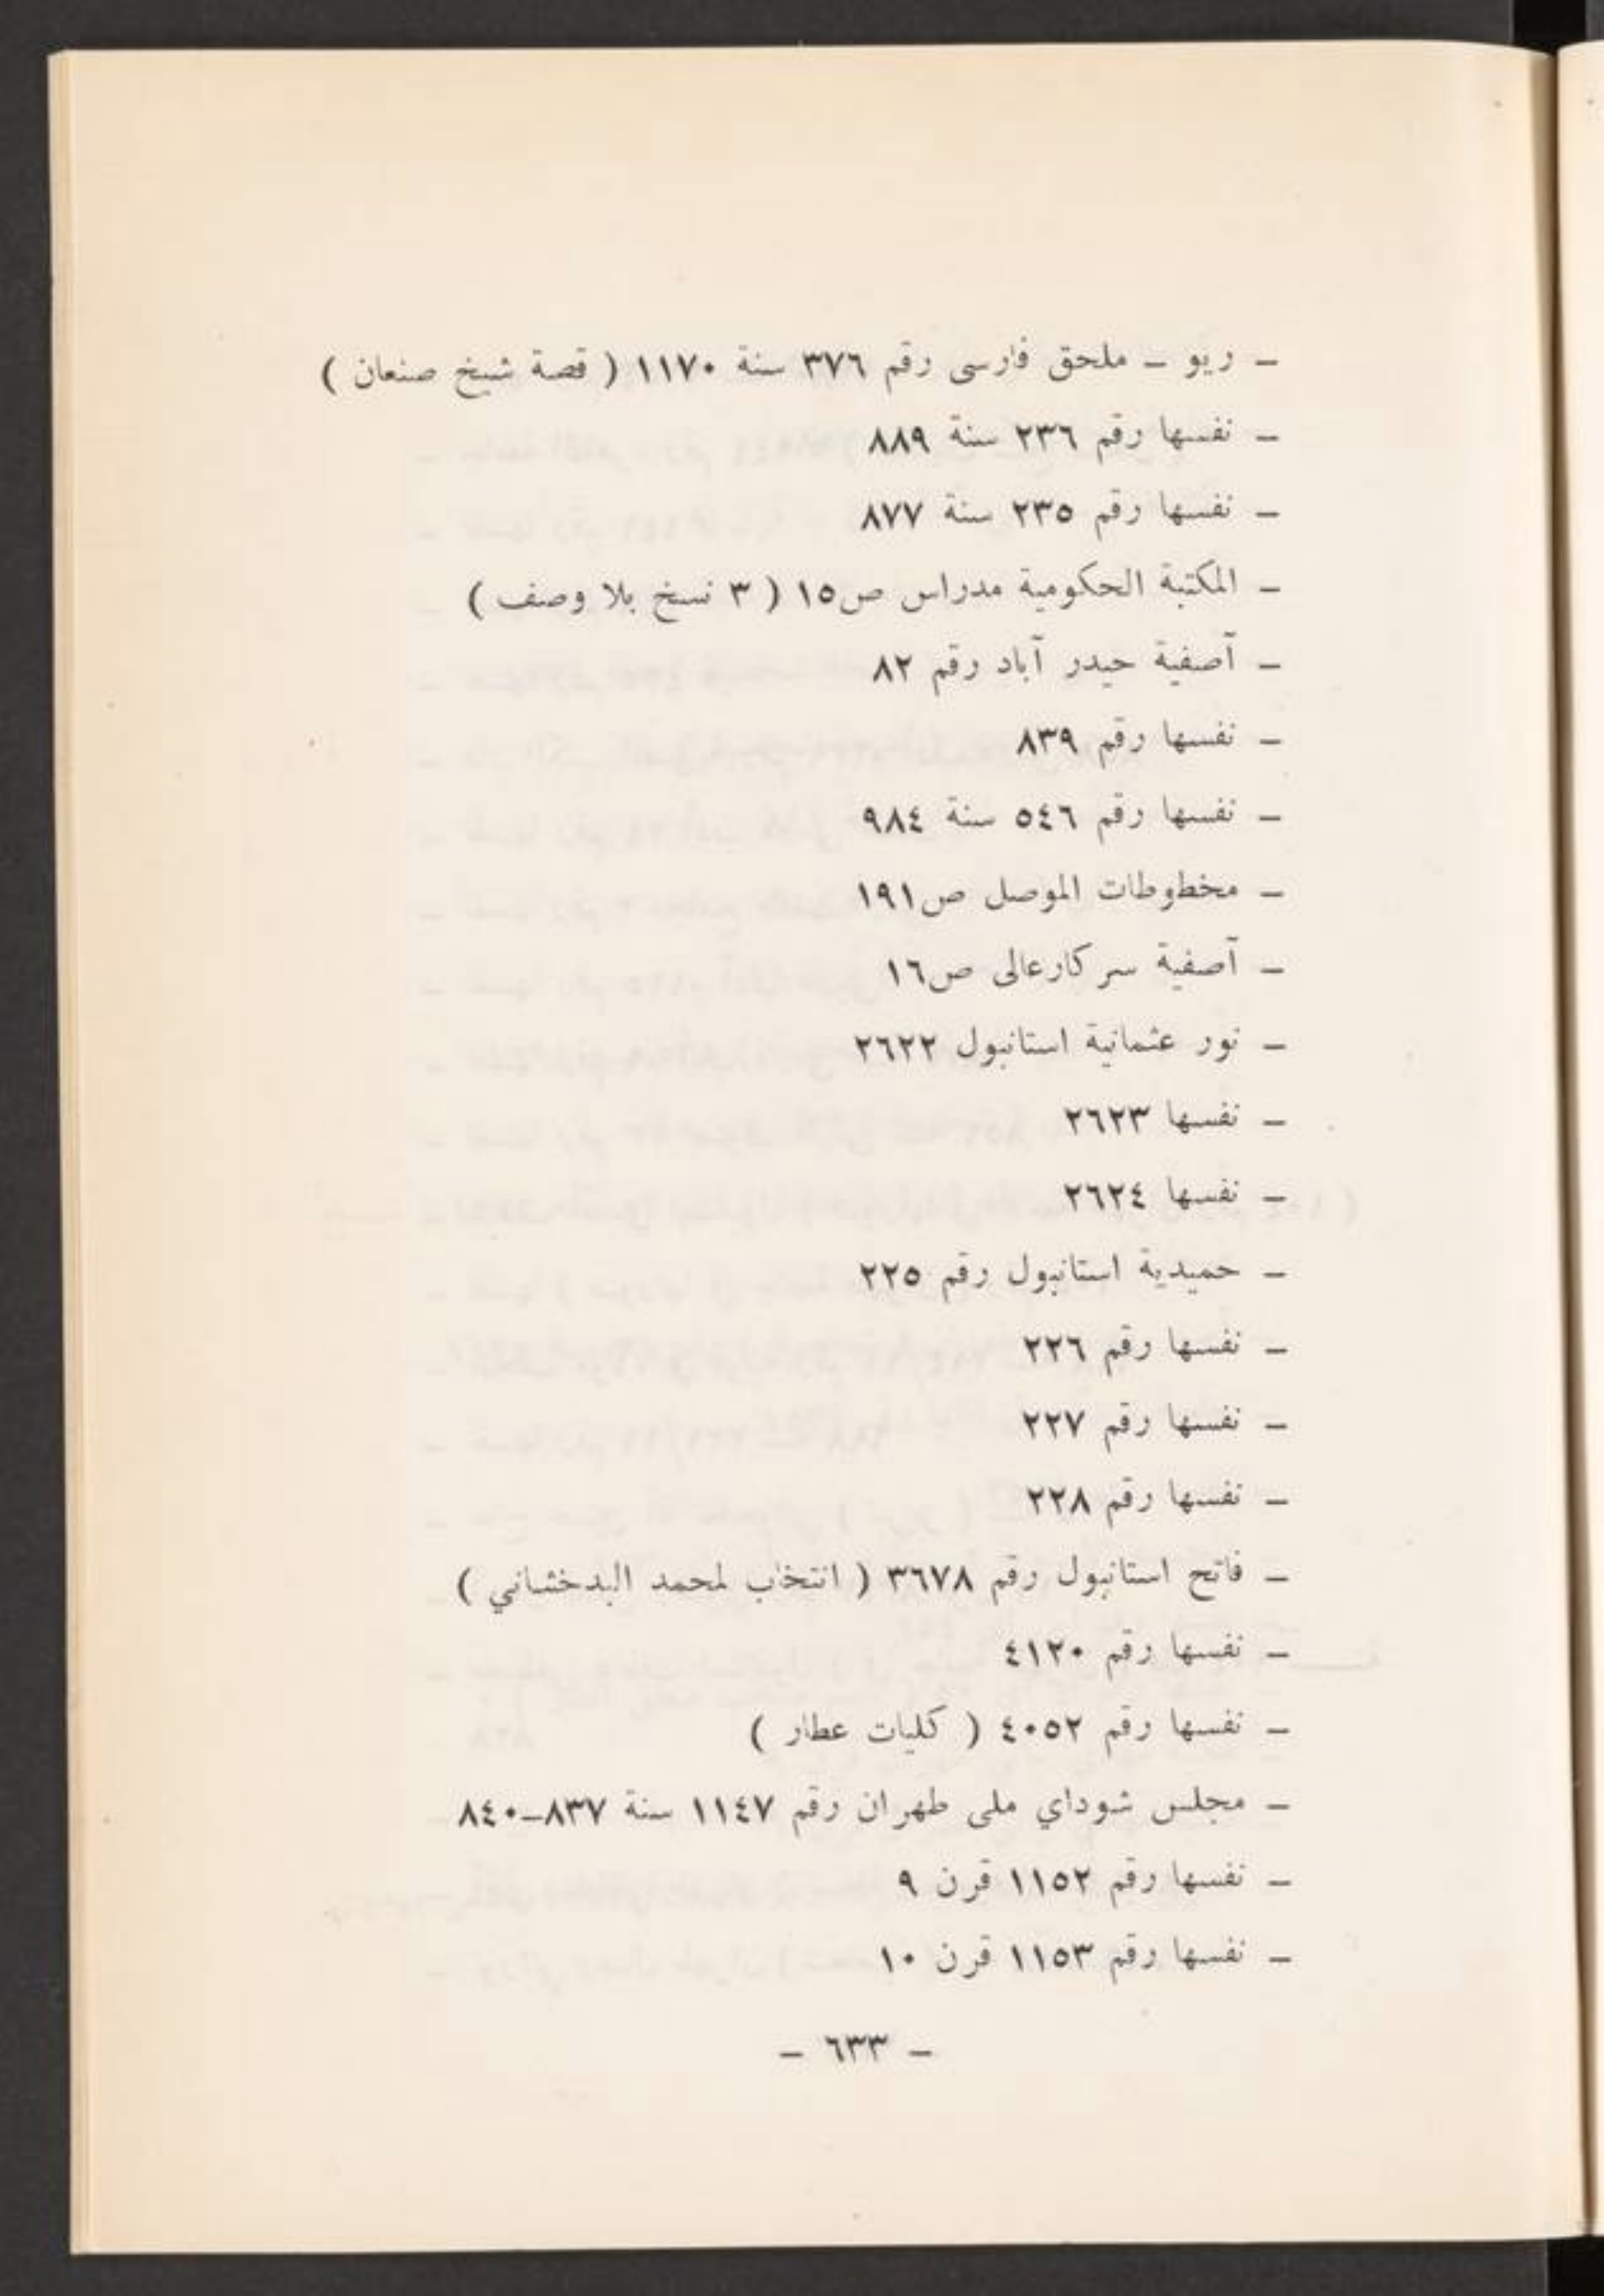 ـ ريو ـ ملحق فارسى رقم ٣٧٦ سنة ١١٧٠ ( قصة شيخ صنعان )
ـ نفسها رقم ٢٣٦ سنة ٨٨٩
ـ نفسها رقم ٢٣٥ سنة ٨٧٧
ـ المكتبة الحكومية مدراس ص١٥ ( ٣ نسخ بلا وصف )
ـ آصفية حيدر آباد رقم ٨٢
ـ نفسها رقم ٨٣٩
ـ نفسها رقم ٥٤٦ سنة ٩٨٤
ـ مخطوطات الموصل ص١٩١
ـ آصفية سركارعالى ص١٦
ـ نور عثمانية استانبول ٢٦٢٢
ـ نفسها ٢٦٢٣
ـ نفسها ٢٦٢٤
ـ حميدية استانبول رقم ٢٢٥
ـ نفسها رقم ٢٢٦
ـ نفسها رقم ٢٢٧
ـ نفسها رقم ٢٢٨
ـ فاتح استانبول رقم ٣٦٧٨ ( انتخاب لمحمد البدخشاني )
ـ نفسها رقم ٤١٢٠
ـ نفسها رقم ٤٠٥٢ ( كليات عطار )
ـ مجلس شوداي ملى طهران رقم ١١٤٧ سنة ٨٣٧ـ٨٤٠
ـ نفسها رقم ١١٥٢ قرن ٩
ـ نفسها رقم ١١٥٣ قرن ١٠
ـ ٦٣٣ ـ